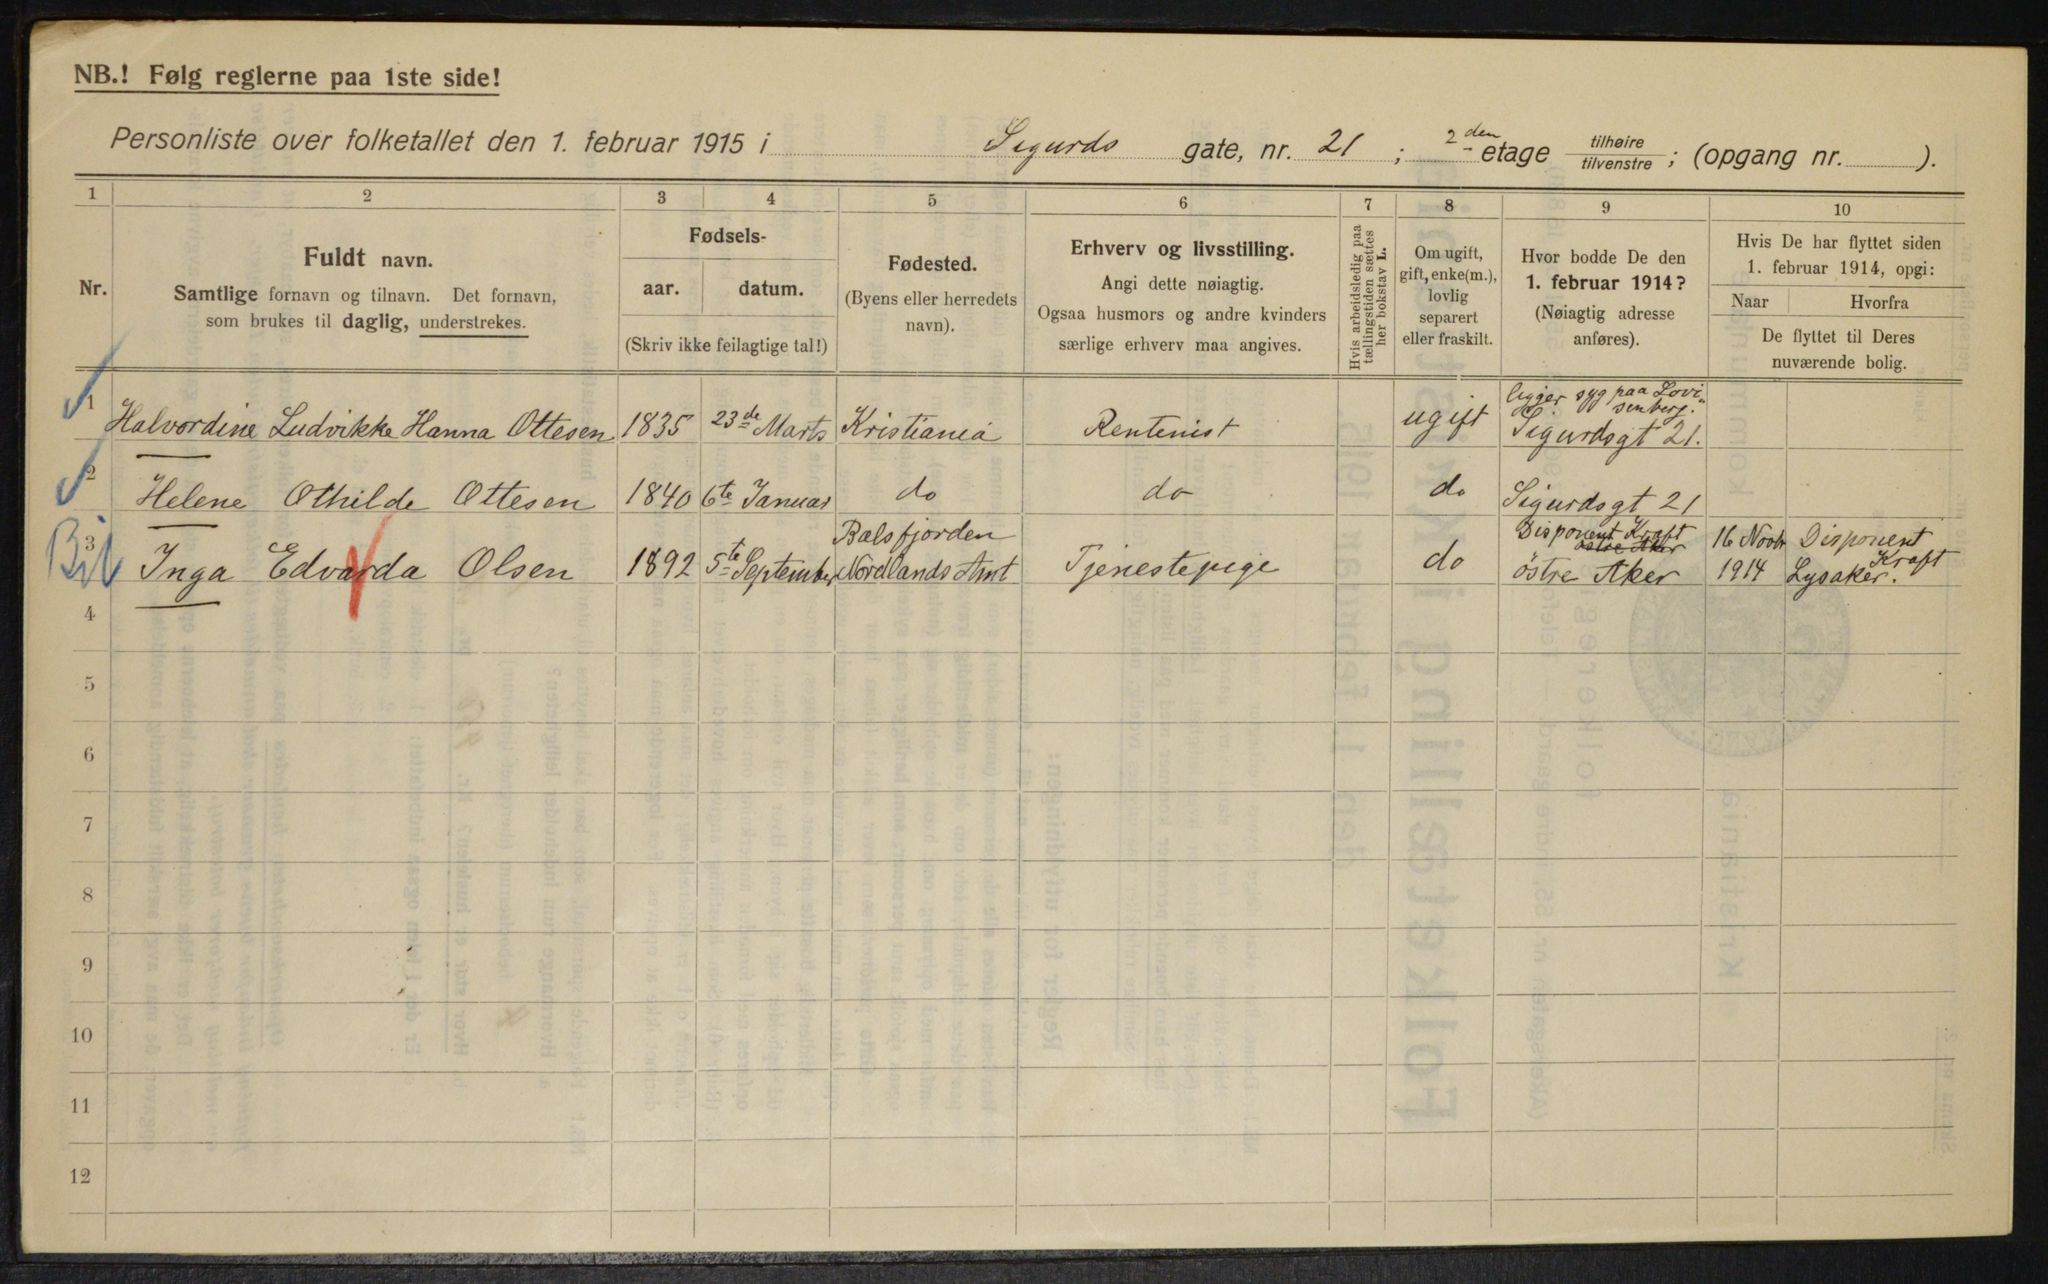 NB.! Følg reglerne paa 1ste side!
Personliste over folketallet den 1. februar 1915 i Sigurds gate, nr. 21 ; 2den etage tilhøire tilvenstre ; (opgang nr. ).
1 2 3 4 5 6 7 8 9 10
Nr.
Fuldt navn.
Samtlige fornavn og tilnavn. Det fornavn,
som brukes til daglig, understrekes.
Fødsels-
aar. datum.
(Skriv ikke feilagtige tal!)
Fødested.
(Byens eller herredets
navn).
Erhverv og livsstilling.
Angi dette nøiagtig.
Ogsaa husmors og andre kvinders
særlige erhverv maa angives.
Hvis arbeidsledig paa
tællingstiden sættes
her bokstav L.
Om ugift,
gift, enke(m.),
lovlig
separert
eller fraskilt.
Hvor bodde De den
1. februar 1914?
(Nøiagtig adresse
anføres).
Hvis De har flyttet siden
1. februar 1914, opgi:
Naar Hvorfra
De flyttet til Deres
nuværende bolig.
ligger syg paa Lovi-
senberg.
1 Halvordine Ludvikke Hanna Ottesen 1835 23de Marts Kristiania Rentenist ugift Sigurdsgt 21.
2 Helene Othilde Ottesen 1840 6te Januar do do do Sigurdsgt 21
Bil
3 Inga Edvarda Olsen 1892 5te September Balsfjorden Nordlands Amt Tjenestepige do Disponent Kraft östre Aker östre Aker 16 Novbr 1914 Disponent Kraft Lysaker.
4
5
6
7
8
9
10
11
12